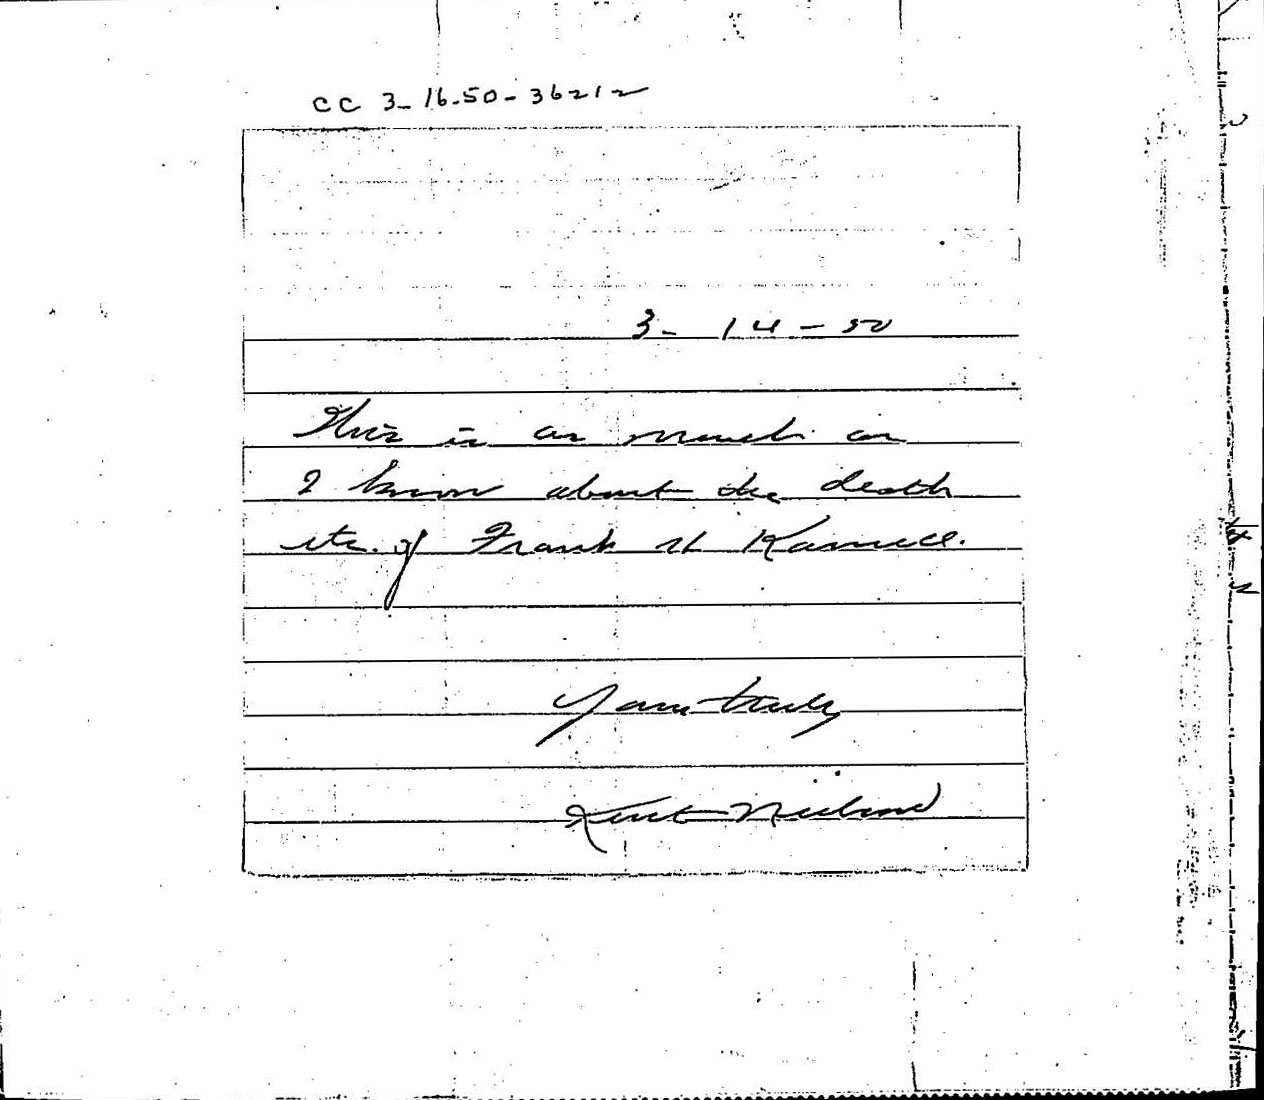 CC 3-16-50-36212
3-14-50
This is as much as
I know about the death
etc. of Frank H
Yours truly
Kurt